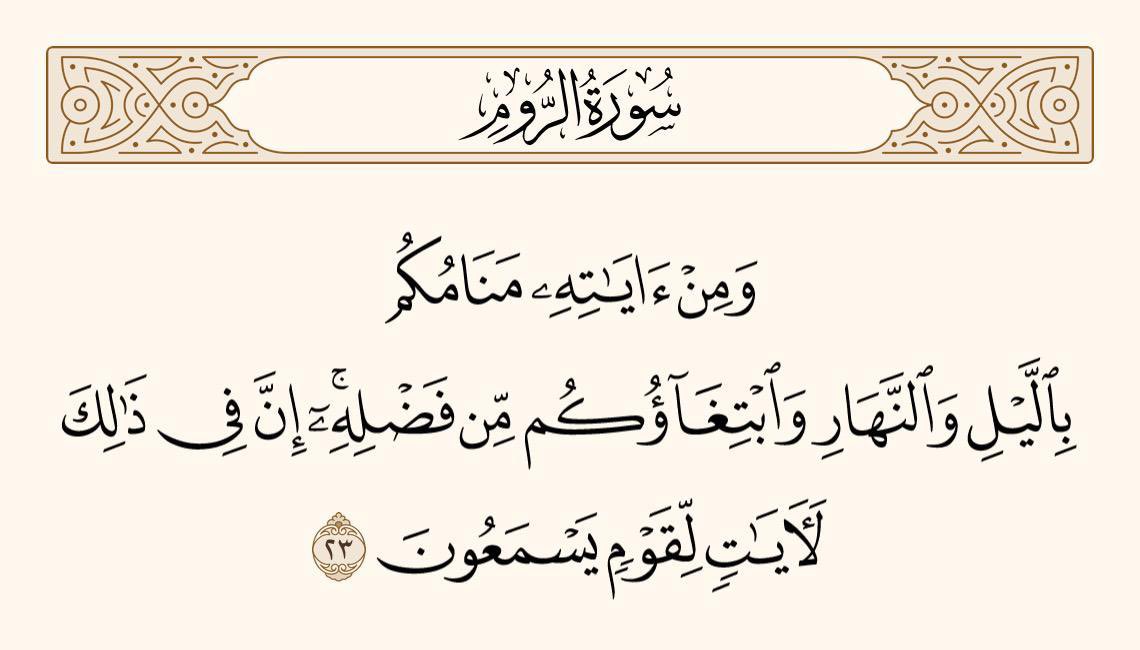 سُورَةُ الرُّومِ
وَمِنْ ءَايَٰتِهِۦ مَنَامُكُم
بِٱلَّيْلِ وَٱلنَّهَارِ وَٱبْتِغَآؤُكُم مِّن فَضْلِهِۦٓ ۚ إِنَّ فِى ذَٰلِكَ
لَءَايَٰتٍ لِّقَوْمٍ يَسْمَعُونَ ٢٣